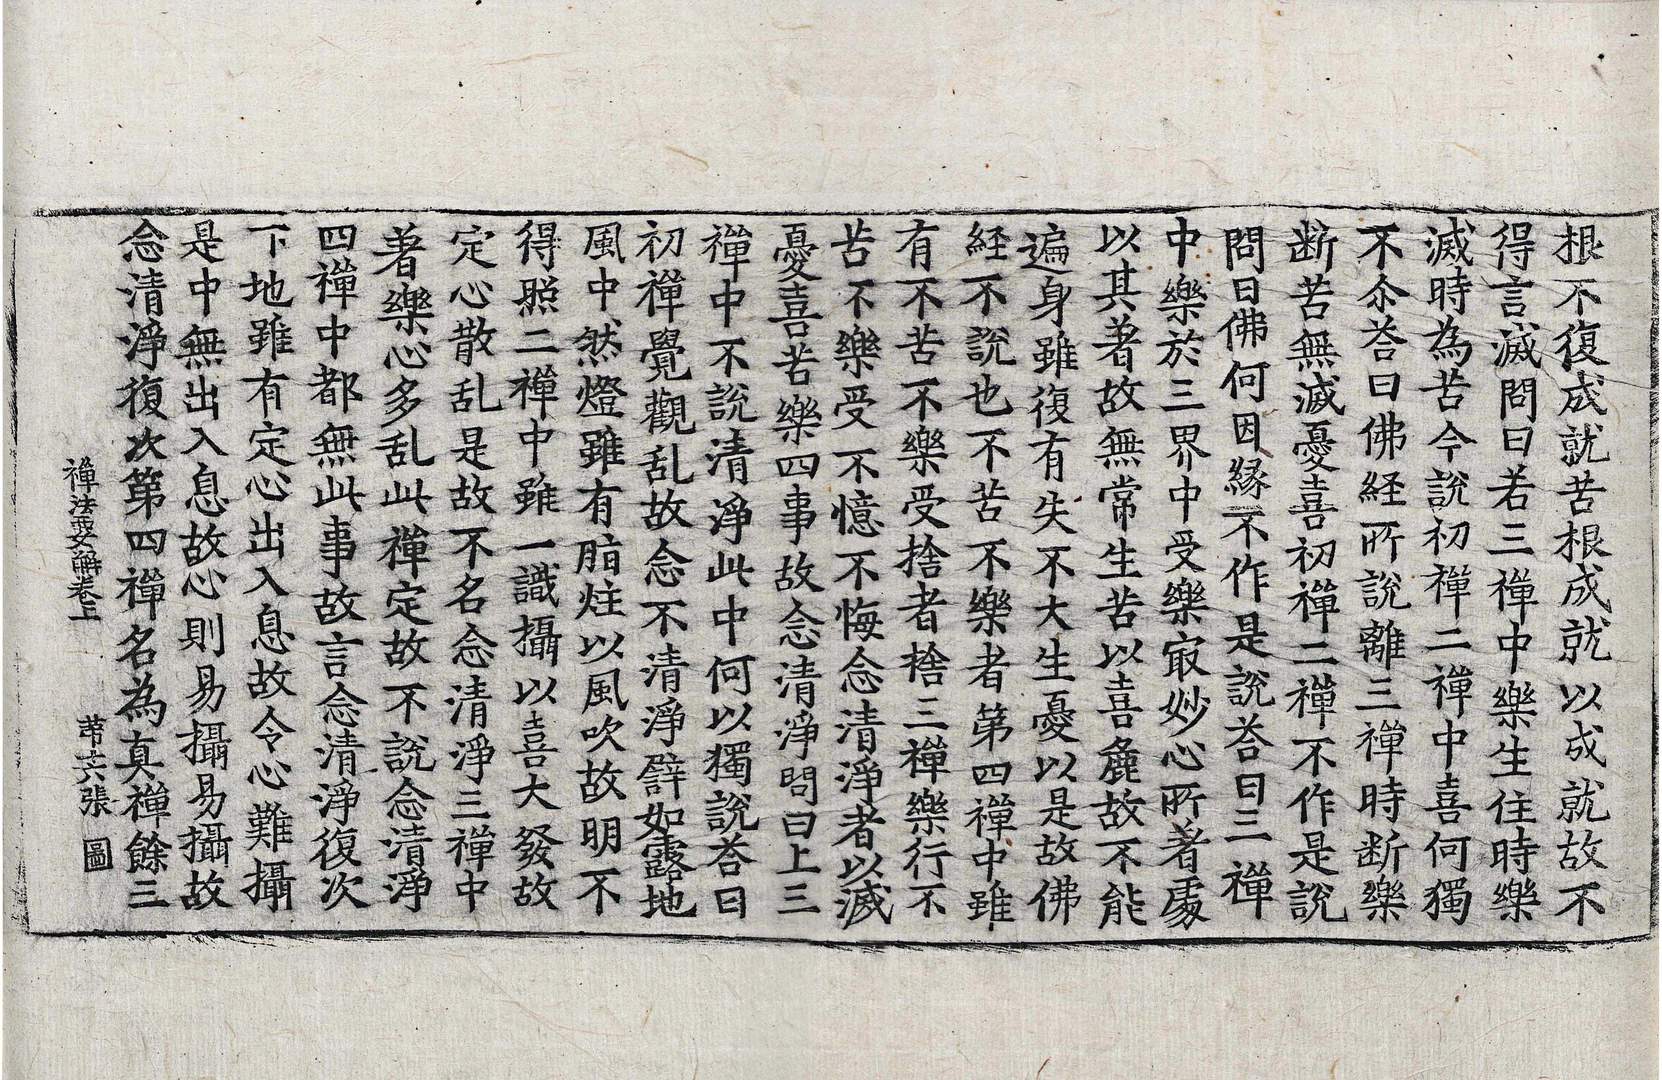 根不復成就苦根成就以成就故不
得言滅問曰若三禪中樂生住時樂
滅時為苦今說初禪二禪中喜何獨
不尒荅曰佛経所說離三禪時断樂
断苦無滅憂喜初禪二禪不作是說
問曰佛何因緣不作是說荅曰三禪
中樂於三界中受樂㝡妙心所著處
以其著故無常生苦以喜麁故不能
遍身雖復有失不大生憂以是故佛
経不說也不苦不樂者第四禪中雖
有不苦不樂受捨者捨三禪樂行不
苦不樂受不憶不悔念清淨者以滅
憂喜苦樂四事故念清淨問曰上三
禪中不說清淨此中何以獨說荅曰
初禪覺觀乱故念不清淨譬如露地
風中然燈雖有脂炷以風吹故明不
得照二禪中雖一識攝以喜大發故
定心散乱是故不名念清淨三禪中
著樂心多乱此禪定故不說念清淨
四禪中都無此事故言念清淨復次
下地雖有定心出入息故令心難攝
是中無出入息故心則易攝易攝故
念清淨復次第四禪名為真禪餘三
禪法要解卷上 苐六張 圖